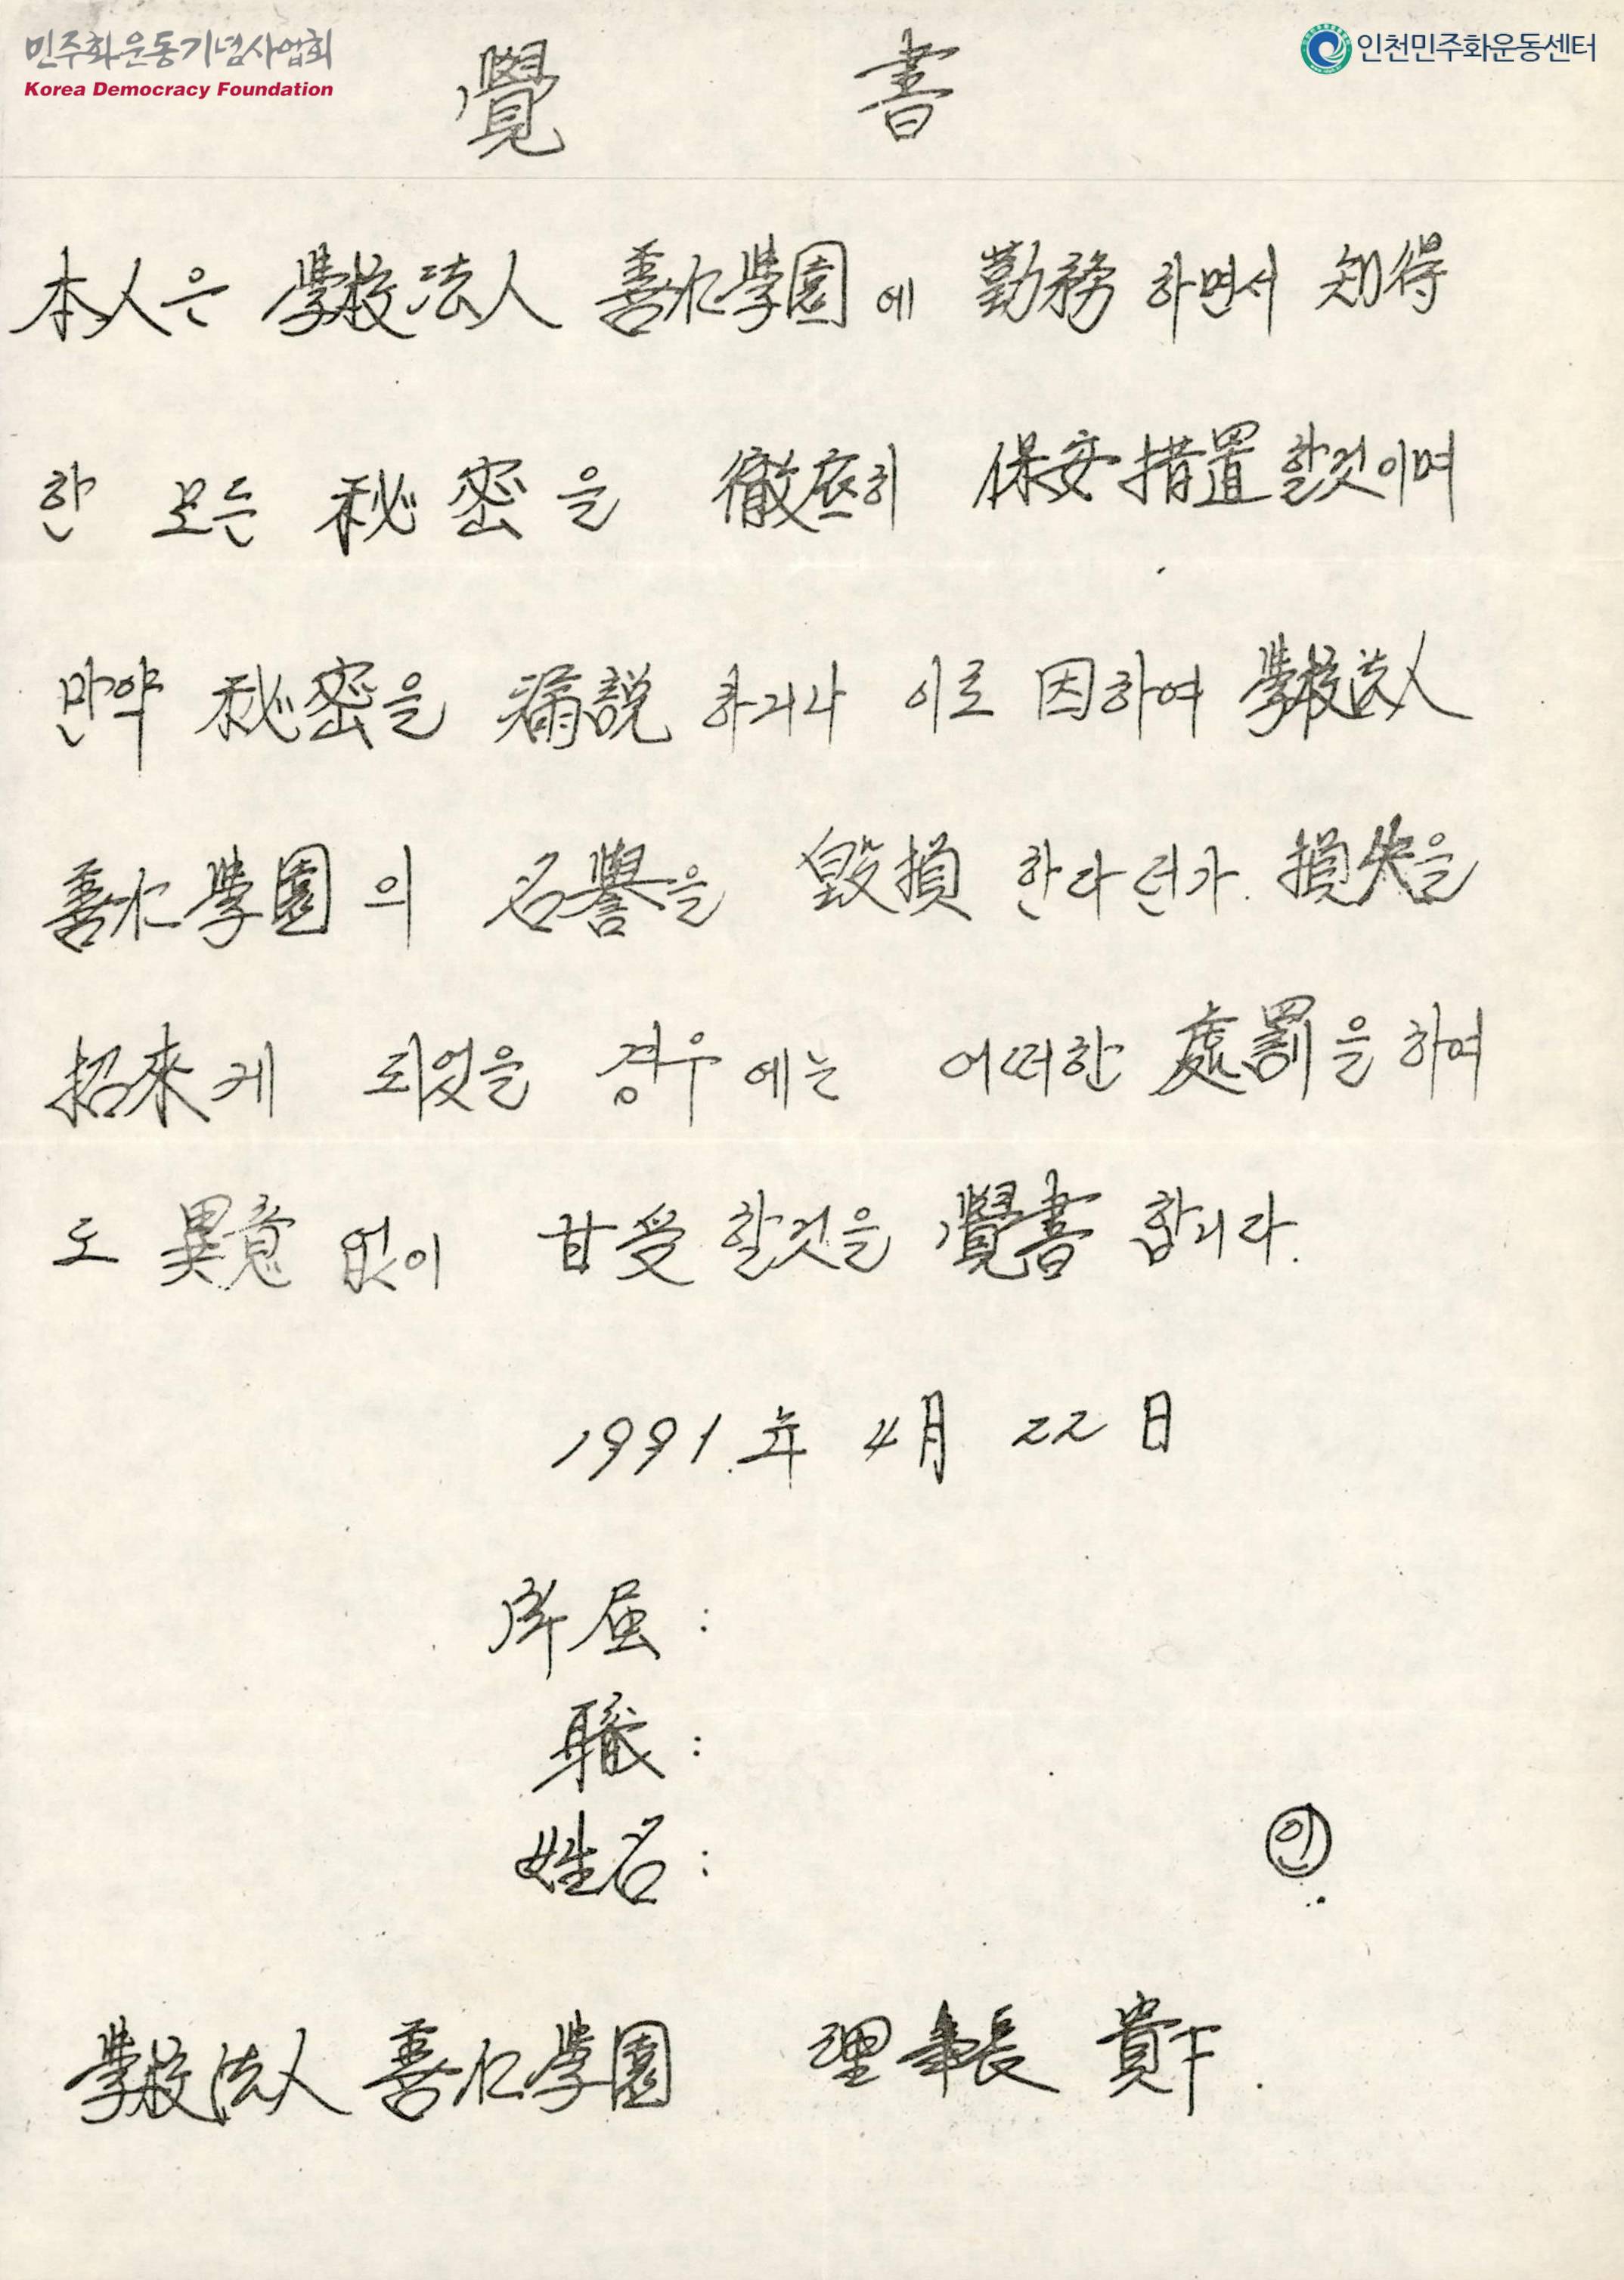 민주화운동기념사업회
Korea Democracy Foundation
인천민주화운동센터
覺 書
本人은 學校法人 善仁學園에 勤務하면서 知得
한 모든 秘密을 徹底히 保安措置할것이며
만약 秘密을 漏說하거나 이로 因하여 學校法人
善仁學園의 名譽을 毁損한다던가. 損失을
招來케 되었을 경우에는 어떠한 處罰을하여
도 異意없이 甘受할것을 覺書합니다.
1991.年 4月 22日
所屬 :
職 :
姓名 : 인
學校法人 善仁學園 理事長 貴下.